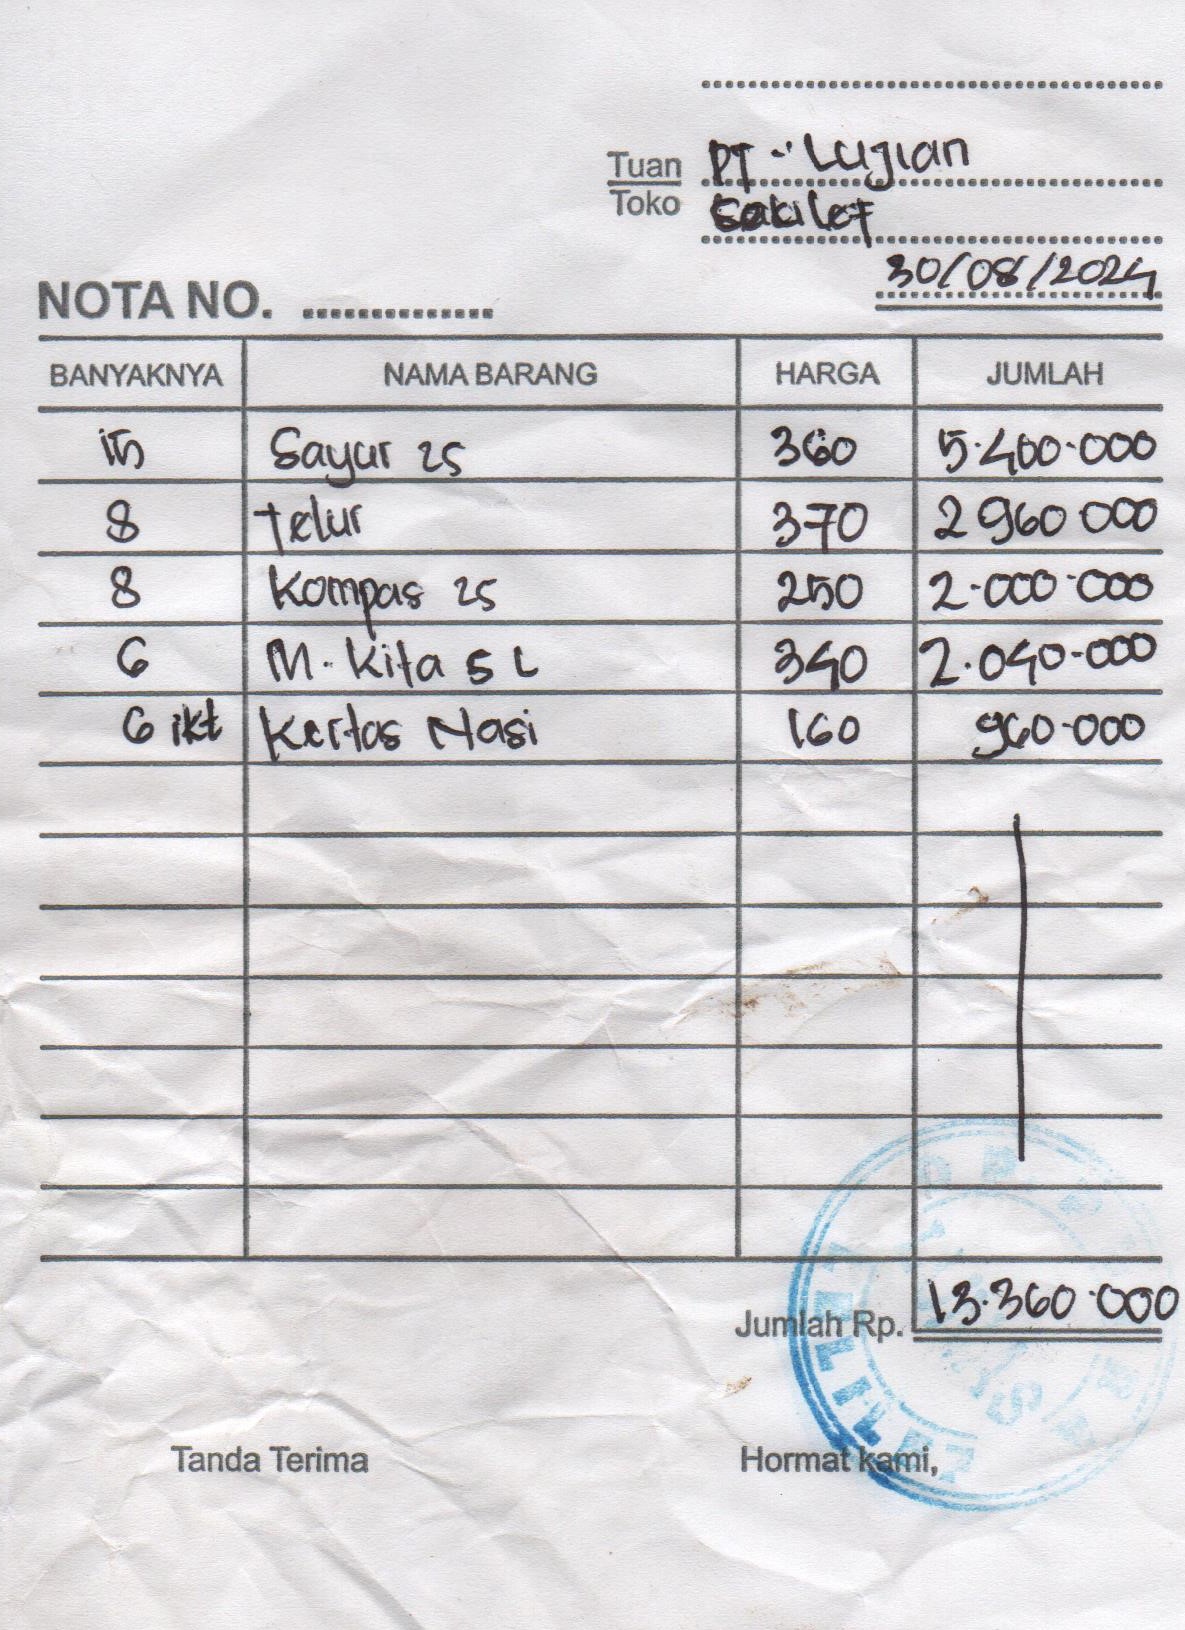 Tuan PT. Lujian
Toko
30/08/2024
NOTA NO. ..............
BANYAKNYA NAMA BARANG HARGA JUMLAH
15 Sayur 25 360 5.400.000
8 Telur 370 2 960 000
8 Kompas 25 250 2.000.000
6 M. Kita 5 L 340 2.040.000
6 ikt Kertas Nasi 160 960.000
Jumlah Rp. 13.360.000
Tanda Terima Hormat kami,